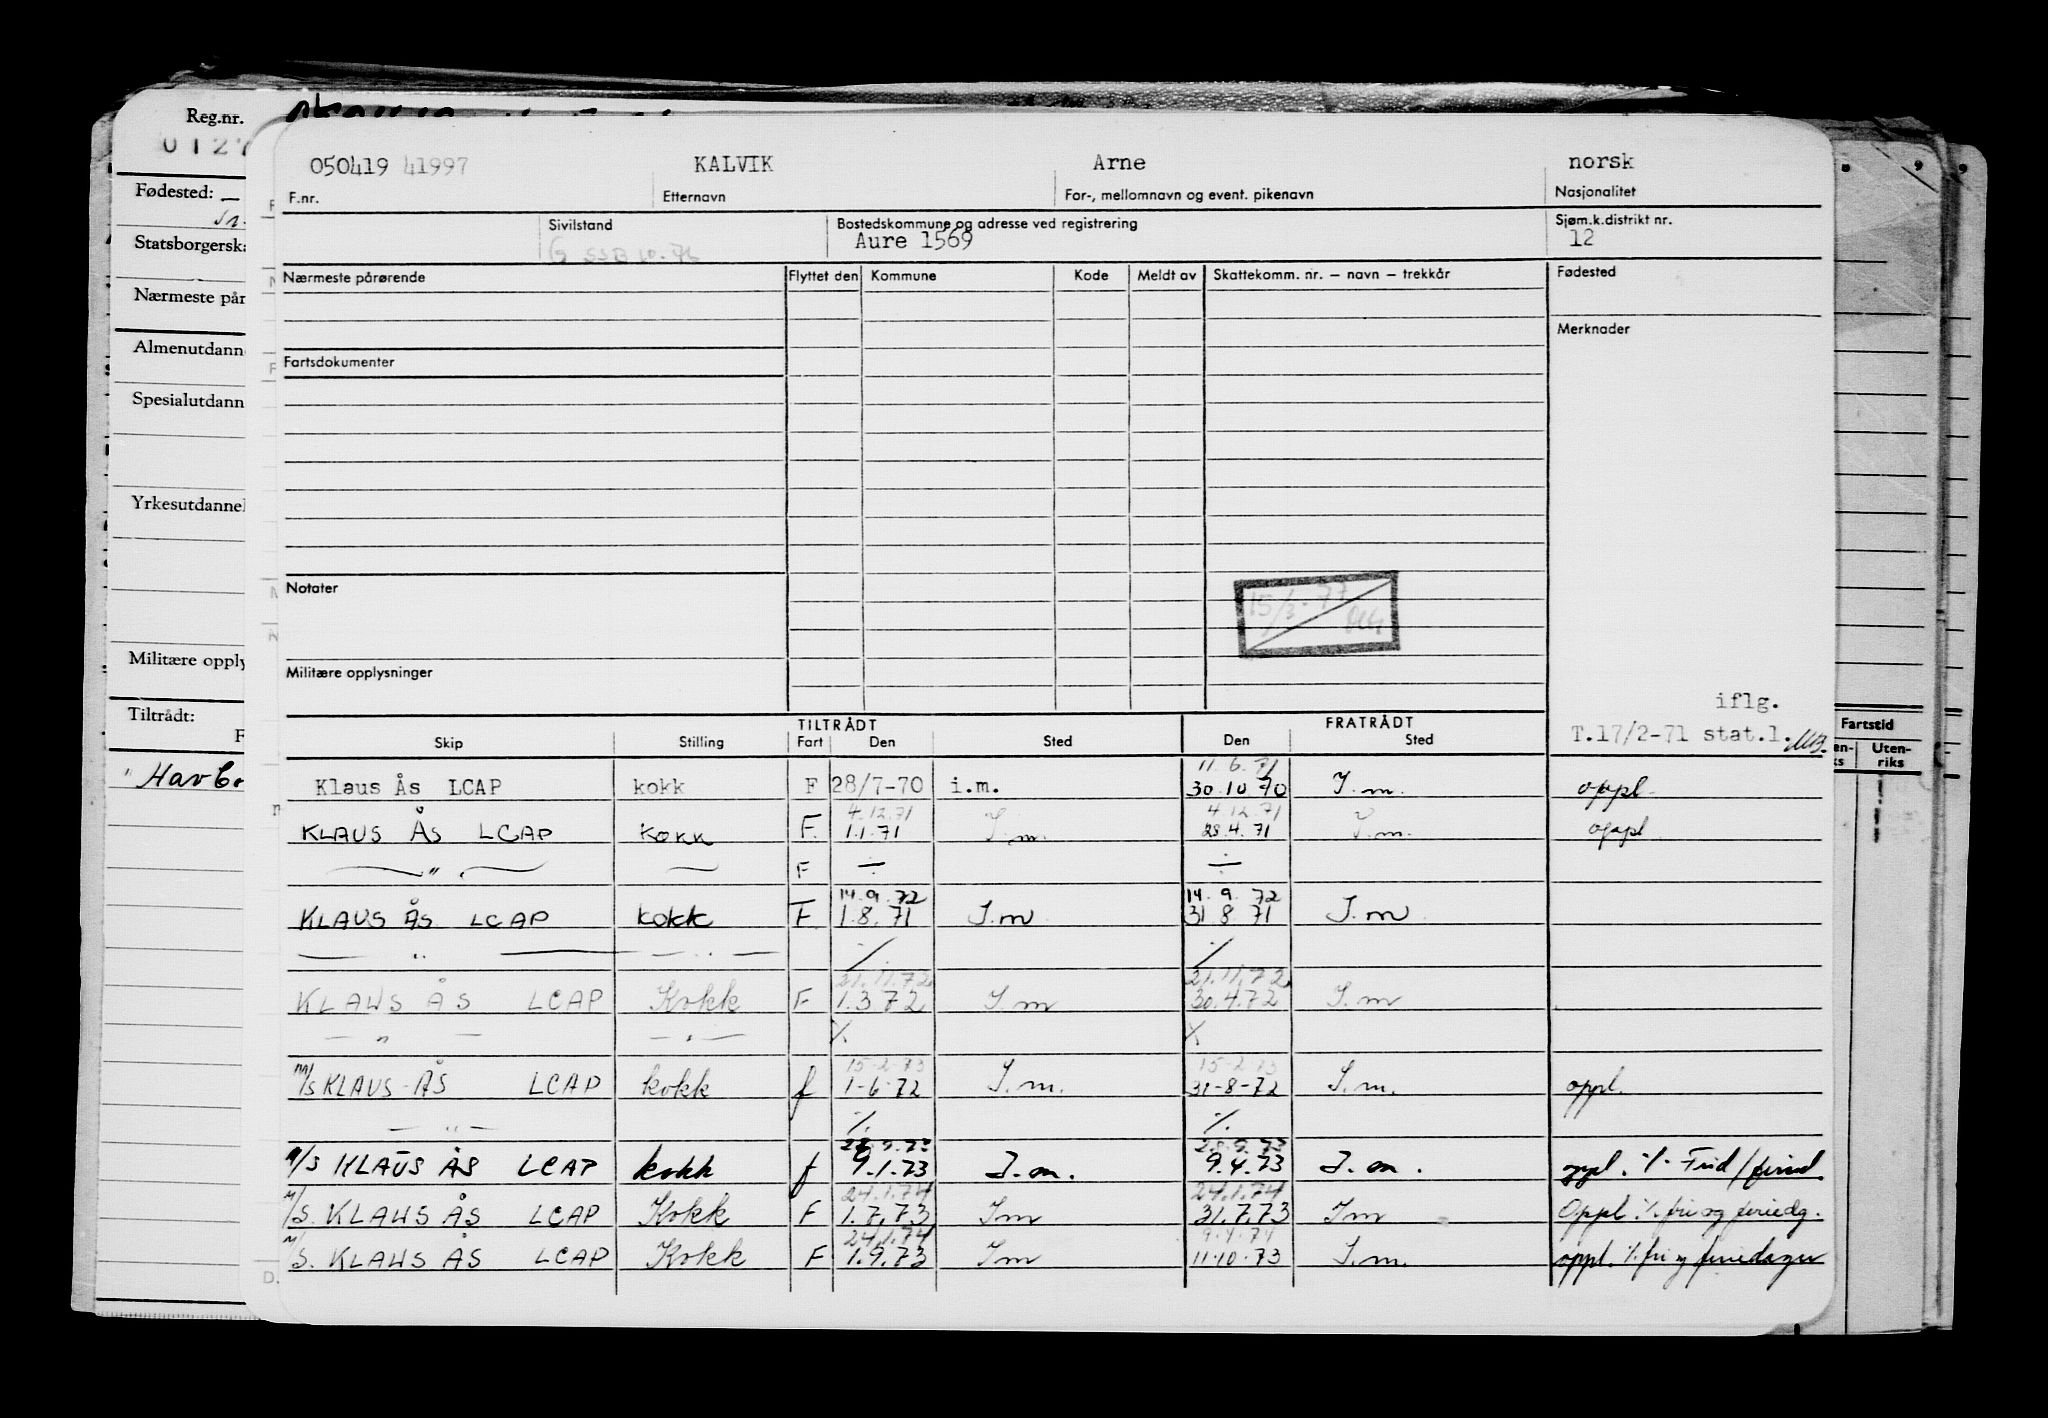 Reg.nr.
0127
Fødested:
Statsborgerska
Nærmeste pår
Almenutdann
Spesialutdann
Yrkesutdannel
Militære opply
Tiltrådt:
F
" Havb
050419 41997 KALVIK Arne norsk
F.nr. Etternavn For-, mellomnavn og event. pikenavn Nasjonalitet
Sivilstand Bostedskommune og adresse ved registrering Sjøm.k.distrikt nr.
G SSB 10.76 Aure 1569 12
Nærmeste pårørende Flyttet den Kommune Kode Meldt av Skattekomm. nr. – navn – trekkår Fødested
Merknader
Fartsdokumenter
Notater
15/3-77
Militære opplysninger
iflg.
T.17/2-71 stat.l. MB.
TILTRÅDT FRATRÅDT
Skip Stilling Fart Den Sted Den Sted
Fartstid
Uten-
riks
11.6.71
Klaus Ås LCAP kokk F 28/7-70 i.m. 30.10.70 I.m. oppl.
4.12.71 4.12.71
KLAUS ÅS LCAP kokk F. 1.1.71 I.m. 28.4.71 I.m. oppl
— " — — F ÷ ÷
14.9.72 14.9.72
KLAUS ÅS LCAP kokk F. 1.8.71 I.m 31.8.71 I.m
— " — — " — ./. ./.
21.11.72 21.11.72
KLAUS ÅS LCAP Kokk F 1.3.72 I.m 30.4.72 I.m
— " — — " — X X
15-2-73 15-2-73
M/S KLAUS ÅS LCAP kokk f 1-6-72 I.m. 31-8-72 I.m. oppl.
— " — ./. ./.
28.9.73 28.9.73
M/S KLAUS ÅS LCAP kokk f 9.1.73 I.m. 9.4.73 I.m. oppl. ./. Frid/feried.
24.1.74 24.1.74
M/S. KLAUS ÅS LCAP Kokk F 1.7.73 Im 31.7.73 Im Oppl ./. fri og feriedg.
24.1.74 9.4.74
M/S. KLAUS ÅS LCAP Kokk F 1.9.73 Im 11.10.73 I.m. oppl. ./. fri og feriedager
D.